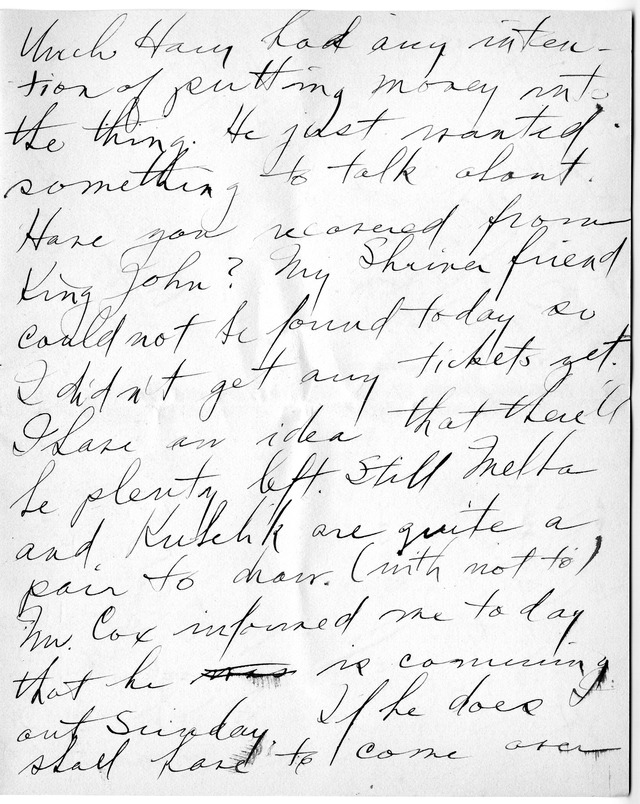 Uncle Harry had any inten-
tion of putting money into
the thing. He just wanted
something to talk about.
Have you recovered from
King John? My Shriner friend
could not be found today so
I didn't get any tickets yet.
I have an idea that there'll
be plenty left. Still Melba
and Kubelik are quite a
pair to draw. (with not to)
Mr. Cox informed me today
that he was is comming
out Sunday. If he does I
shall have to come over